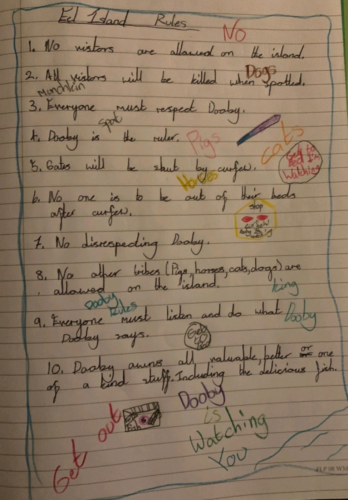 Ed Island Rules
No
1. No vistors are allowed on the island.
Dogs
2. All vistors will be killed when spotted.
Munchkin
3. Everyone must respect Dooby.
Spot
4. Dooby is the ruler.
Pigs
cats
5. Gates will be shut by curfew.
Horses
6. No one is to be out of their beds
after curfew.
Stop
7. No disrespecting Dooby.
8. No other tribes (Pigs, horses, cats, dogs) are
allowed on the island.
Dooby Rules
king
Dooby
9. Everyone must listen and do what
Dooby says.
10. Dooby owns all valuable, better or one
of a kind stuff. Including the delicious fish.
Get out
Dooby
is
Watching
You